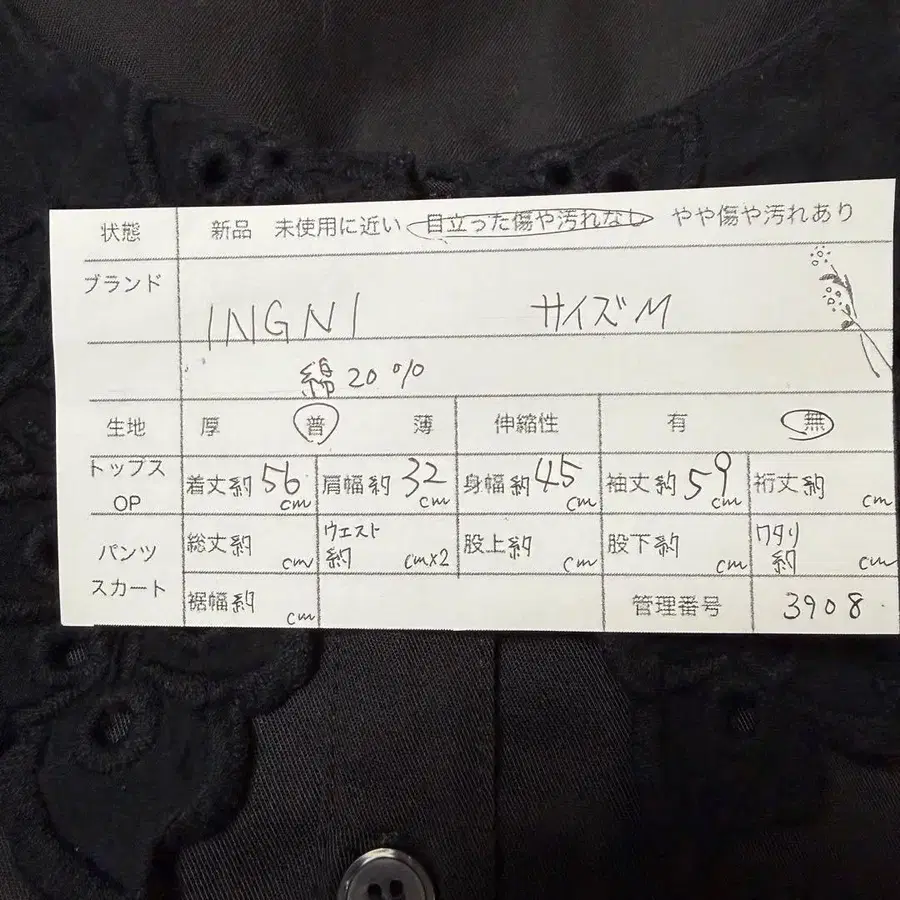 状態 新品 未使用に近い 目立った傷や汚れなし やや傷や汚れあり
ブランド
INGNI サイズM
綿20%
生地 厚 普 薄 伸縮性 有 無
トップス OP 着丈約56cm 肩幅約32cm 身幅約45cm 袖丈約59cm 裄丈約 cm
パンツ スカート 総丈約 cm ウエスト約 cm×2 股上約 cm 股下約 cm ワタリ約 cm
裾幅約 cm 管理番号 3908